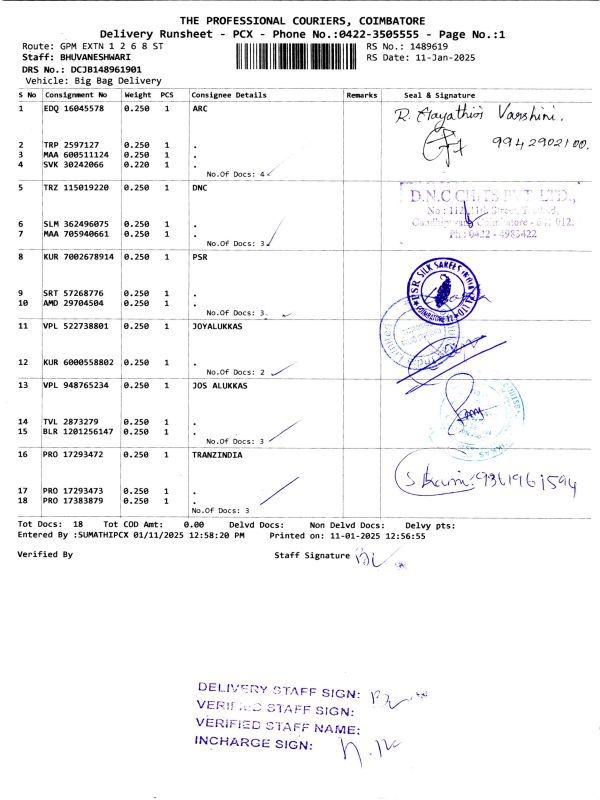 THE PROFESSIONAL COURIERS, COIMBATORE
Delivery Runsheet - PCX - Phone No.:0422-3505555 - Page No.:1
Route: GPM EXTN 1 2 6 8 ST RS No.: 1489619
Staff: BHUVANESHWARI RS Date: 11-Jan-2025
DRS No.: DCJB148961901
Vehicle: Big Bag Delivery
S No Consignment No Weight PCS Consignee Details Remarks Seal & Signature
1 EDQ 16045578 0.250 1 ARC
R. Varshini.
9942902100.
2 TRP 2597127 0.250 1 .
3 MAA 600511124 0.250 1 .
4 SVK 30242066 0.220 1 .
No.Of Docs: 4
5 TRZ 115019220 0.250 1 DNC
D.N.C CHITS PVT LTD.,
6 SLM 362496075 0.250 1 .
7 MAA 705940661 0.250 1 .
Ph: 0422 - 4983422
No.Of Docs: 3
8 KUR 7002678914 0.250 1 PSR
9 SRT 57268776 0.250 1 .
10 AMD 29704504 0.250 1 .
No.Of Docs: 3
11 VPL 522738801 0.250 1 JOYALUKKAS
12 KUR 6000558802 0.250 1 .
No.Of Docs: 2
13 VPL 948765234 0.250 1 JOS ALUKKAS
14 TVL 2873279 0.250 1 .
15 BLR 1201256147 0.250 1 .
No.Of Docs: 3
16 PRO 17293472 0.250 1 TRANZINDIA
17 PRO 17293473 0.250 1 .
18 PRO 17383879 0.250 1 .
No.Of Docs: 3
Tot Docs: 18 Tot COD Amt: 0.00 Delvd Docs: Non Delvd Docs: Delvy pts:
Entered By :SUMATHIPCX 01/11/2025 12:58:20 PM Printed on: 11-01-2025 12:56:55
Verified By Staff Signature
DELIVERY STAFF SIGN:
VERIFIED STAFF SIGN:
VERIFIED STAFF NAME:
INCHARGE SIGN: